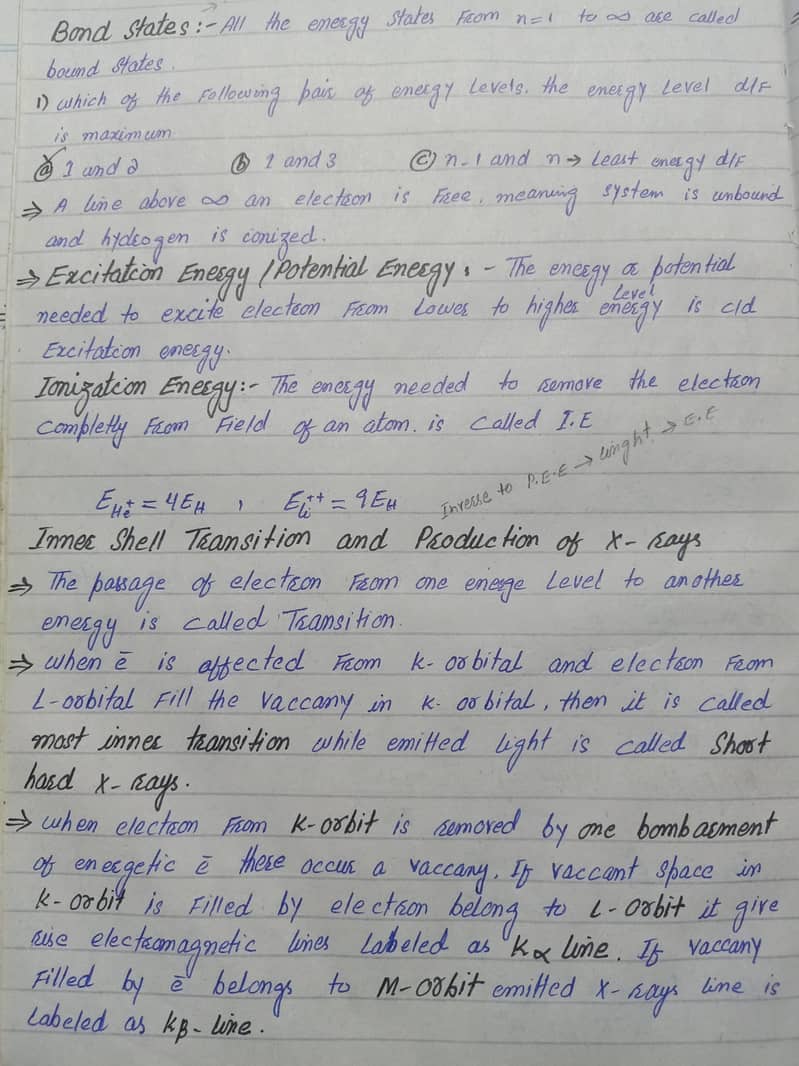 Bond States:- All the energy states From n=1 to ∞ are called
bound states.
1) which of the Following pair of energy Levels. the energy Level d/F
is maximum
(a) 1 and 2 (b) 1 and 3 (c) n-1 and n → Least energy d/F
⇒ A line above ∞ an electron is Free, meaning system is unbound
and hydrogen is ionized.
⇒ Excitation Energy / Potential Energy: - The energy or potential
needed to excite electron From Lower to higher energy Level is c/d
Excitation energy.
Ionization Energy:- The energy needed to remove the electron
completly From Field of an atom. is called I.E
Inverse to P.E.E → winght → E.E
E_He^+ = 4E_H , E_Li^++ = 9E_H
Inner Shell Transition and Production of X-rays
⇒ The passage of electron From one energe Level to another
energy is called Transition.
⇒ when ē is affected From k-orbital and electron From
L-orbital Fill the Vaccany in k-orbital, then it is called
most inner transition while emitted light is called Short
hard X-rays.
⇒ when electron From K-orbit is removed by one bombarment
of energetic ē there occur a vaccany. If vaccant space in
K-orbit is Filled by electron belong to L-orbit it give
rise electromagnetic lines Labeled as Kα line. If vaccany
Filled by ē belongs to M-orbit emitted X-rays line is
Labeled as Kβ-line.